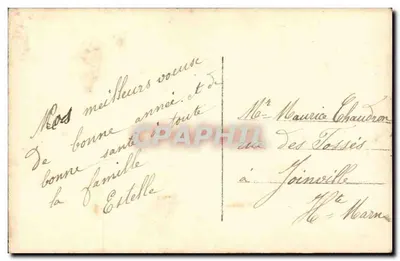 Mes meilleurs voeuse
de bonne année et de
bonne santé à toute
la famille
Estelle
Mr Maurice Chaudron
rue des Fossés
à Joinville
Hte Marne
CPAPHIL